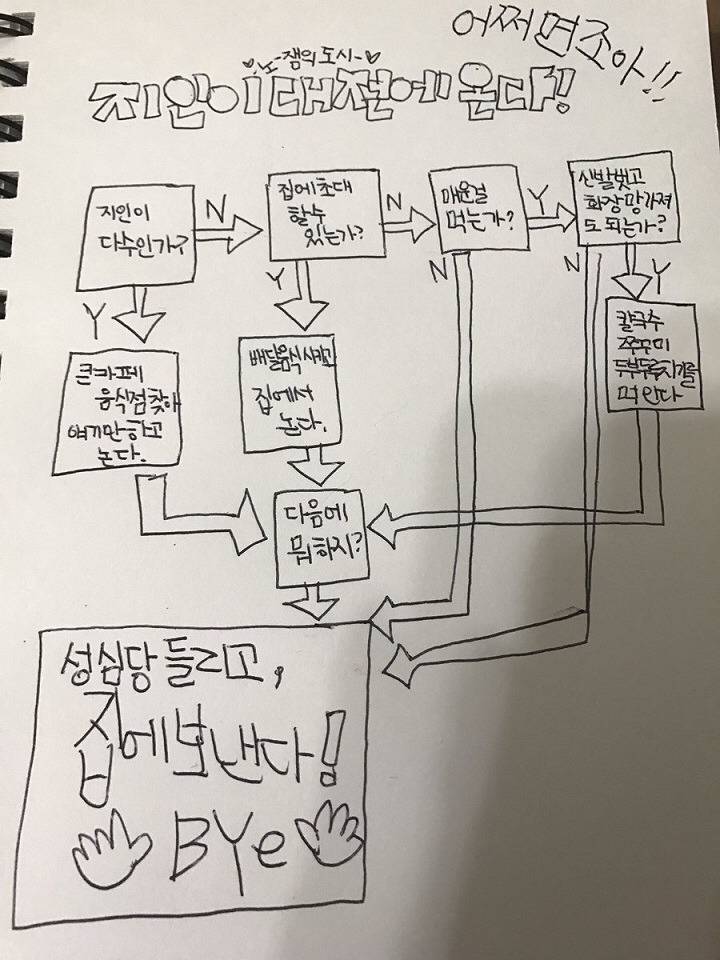 어쩌면조아!!
노잼의 도시
지인이 대전에 온다!
지인이
다수인가?
N
집에초대
할수
있는가?
N
매운걸
먹는가?
Y
신발벗고
화장망가져
도 되는가?
Y
Y
N
N
Y
큰카페
음식점찾아
얘기만하고
논다.
배달음식시키고
집에서
논다.
칼국수
쭈꾸미
두부두루치기를
먹인다
다음에
뭐하지?
성심당 들리고,
집에보낸다!
BYe